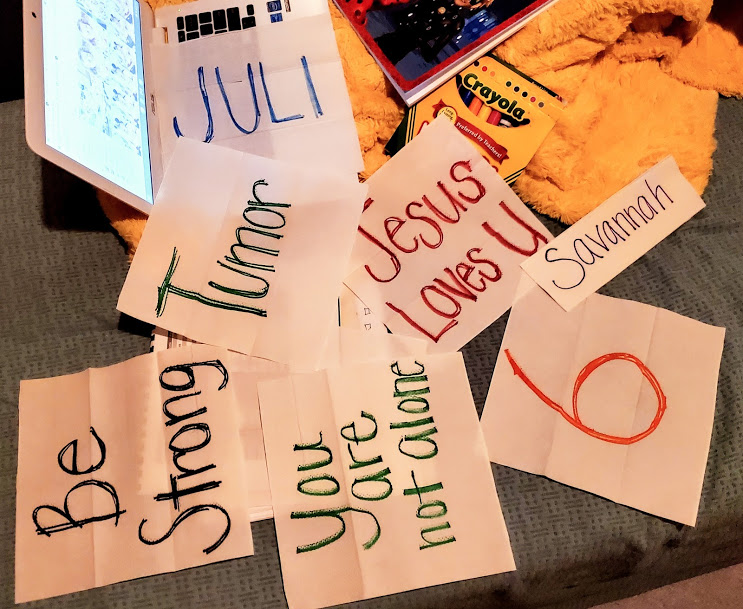 JULI
Crayola
Preferred by Teachers!
Tumor
Jesus
Loves U
Savannah
6
Be
Strong
You
are
not alone